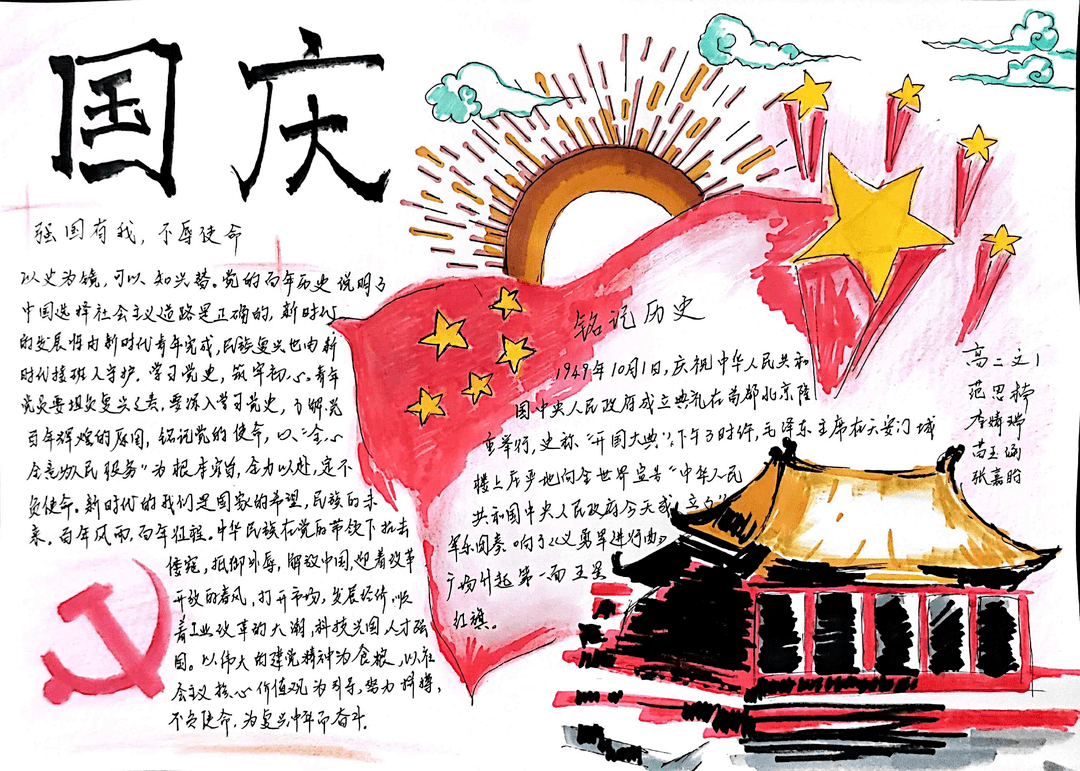 国庆
强国有我，不辱使命
以史为镜，可以知兴替。党的百年历史说明了
中国选择社会主义道路是正确的，新时代
的发展将由新时代青年完成，民族复兴也由新
时代接班人守护。学习党史，筑牢初心。青年
党员要担负复兴之责，要深入学习党史，了解党
百年辉煌的原因，铭记党的使命，以“全心
全意为人民服务”为根本宗旨，全力以赴，定不
负使命。新时代的我们是国家的希望，民族的未
来。百年风雨，百年征程。中华民族在党的带领下抗击
倭寇，抵御外辱，解放中国，迎着改革
开放的春风，打开市场，发展经济，顺
着工业改革的大潮，科技兴国，人才强
国。以伟大的建党精神为食粮，以社
会主义核心价值观为引导，努力拼搏，
不负使命，为复兴中华而奋斗。
铭记历史
1949年10月1日，庆祝中华人民共和
国中央人民政府成立典礼在首都北京隆
重举行，史称“开国大典”，下午3时许，毛泽东主席在天安门城
楼上庄严地向全世界宣告“中华人民
共和国中央人民政府今天成立了”
军乐团奏响了《义勇军进行曲》
广场升起第一面五星
红旗。
高二文1
范思
李婧瑞
苗玉涵
张嘉昀